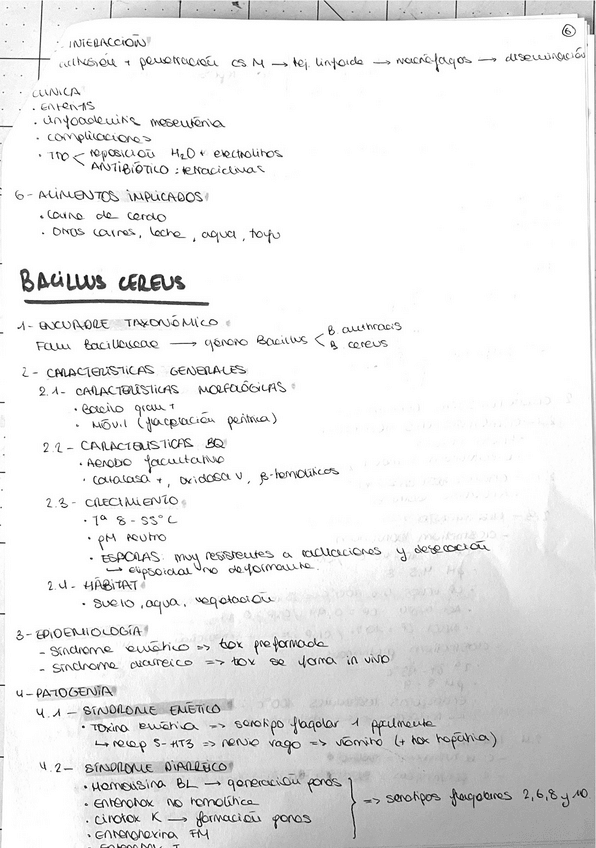 6
- INTERACCIÓN
adhesión + penetración cs M → tej. linfoide → macrófagos → diseminación
- CLINICA
• Enteritis
• linfoadenitis mesentérica
• complicaciones
• TTO < reposición H2O + electrolitos
ANTIBIÓTICO : tetraciclinas
6- ALIMENTOS IMPLICADOS
• Carne de cerdo
• Otras carnes, leche, agua, tofu
BACILLUS CEREUS
1- ENCUADRE TAXONÓMICO
Fam Bacillaceae → género Bacillus < B. anthracis
B cereus
2- CARACTERÍSTICAS GENERALES
2.1- CARACTERÍSTICAS MORFOLÓGICAS
• Bacilo gram +
• MÓVIL (flagelación perítrica)
2.2- CARACTERISTICAS BQ
• Aerobio facultativo
• Catalasa +, oxidasa V, β-hemolíticos
2.3- CRECIMIENTO
• Tª 8-55ºC
• pH neutro
• ESPORAS. muy resistentes a radiaciones y desecación
→ elipsoidal no deformante.
2.4- HÁBITAT
• Suelo, agua, vegetación
3- EPIDEMIOLOGÍA
- Síndrome emético => tox preformada
- síndrome diarreico => tox se forma in vivo
4- PATOGENIA
4.1- SÍNDROME EMÉTICO
• Toxina emética => serotipo flagelar 1 pplmente
↳ recep 5-HT3 => nervio vago => vómito (+ tox hepática)
4.2- SÍNDROME DIARREICO
• Hemolisina BL → generación poros
• enterotox no hemolítica
• citotox K → formación poros
• Enterotoxina FM
} => serotipos flagelares 2,6,8 y 10